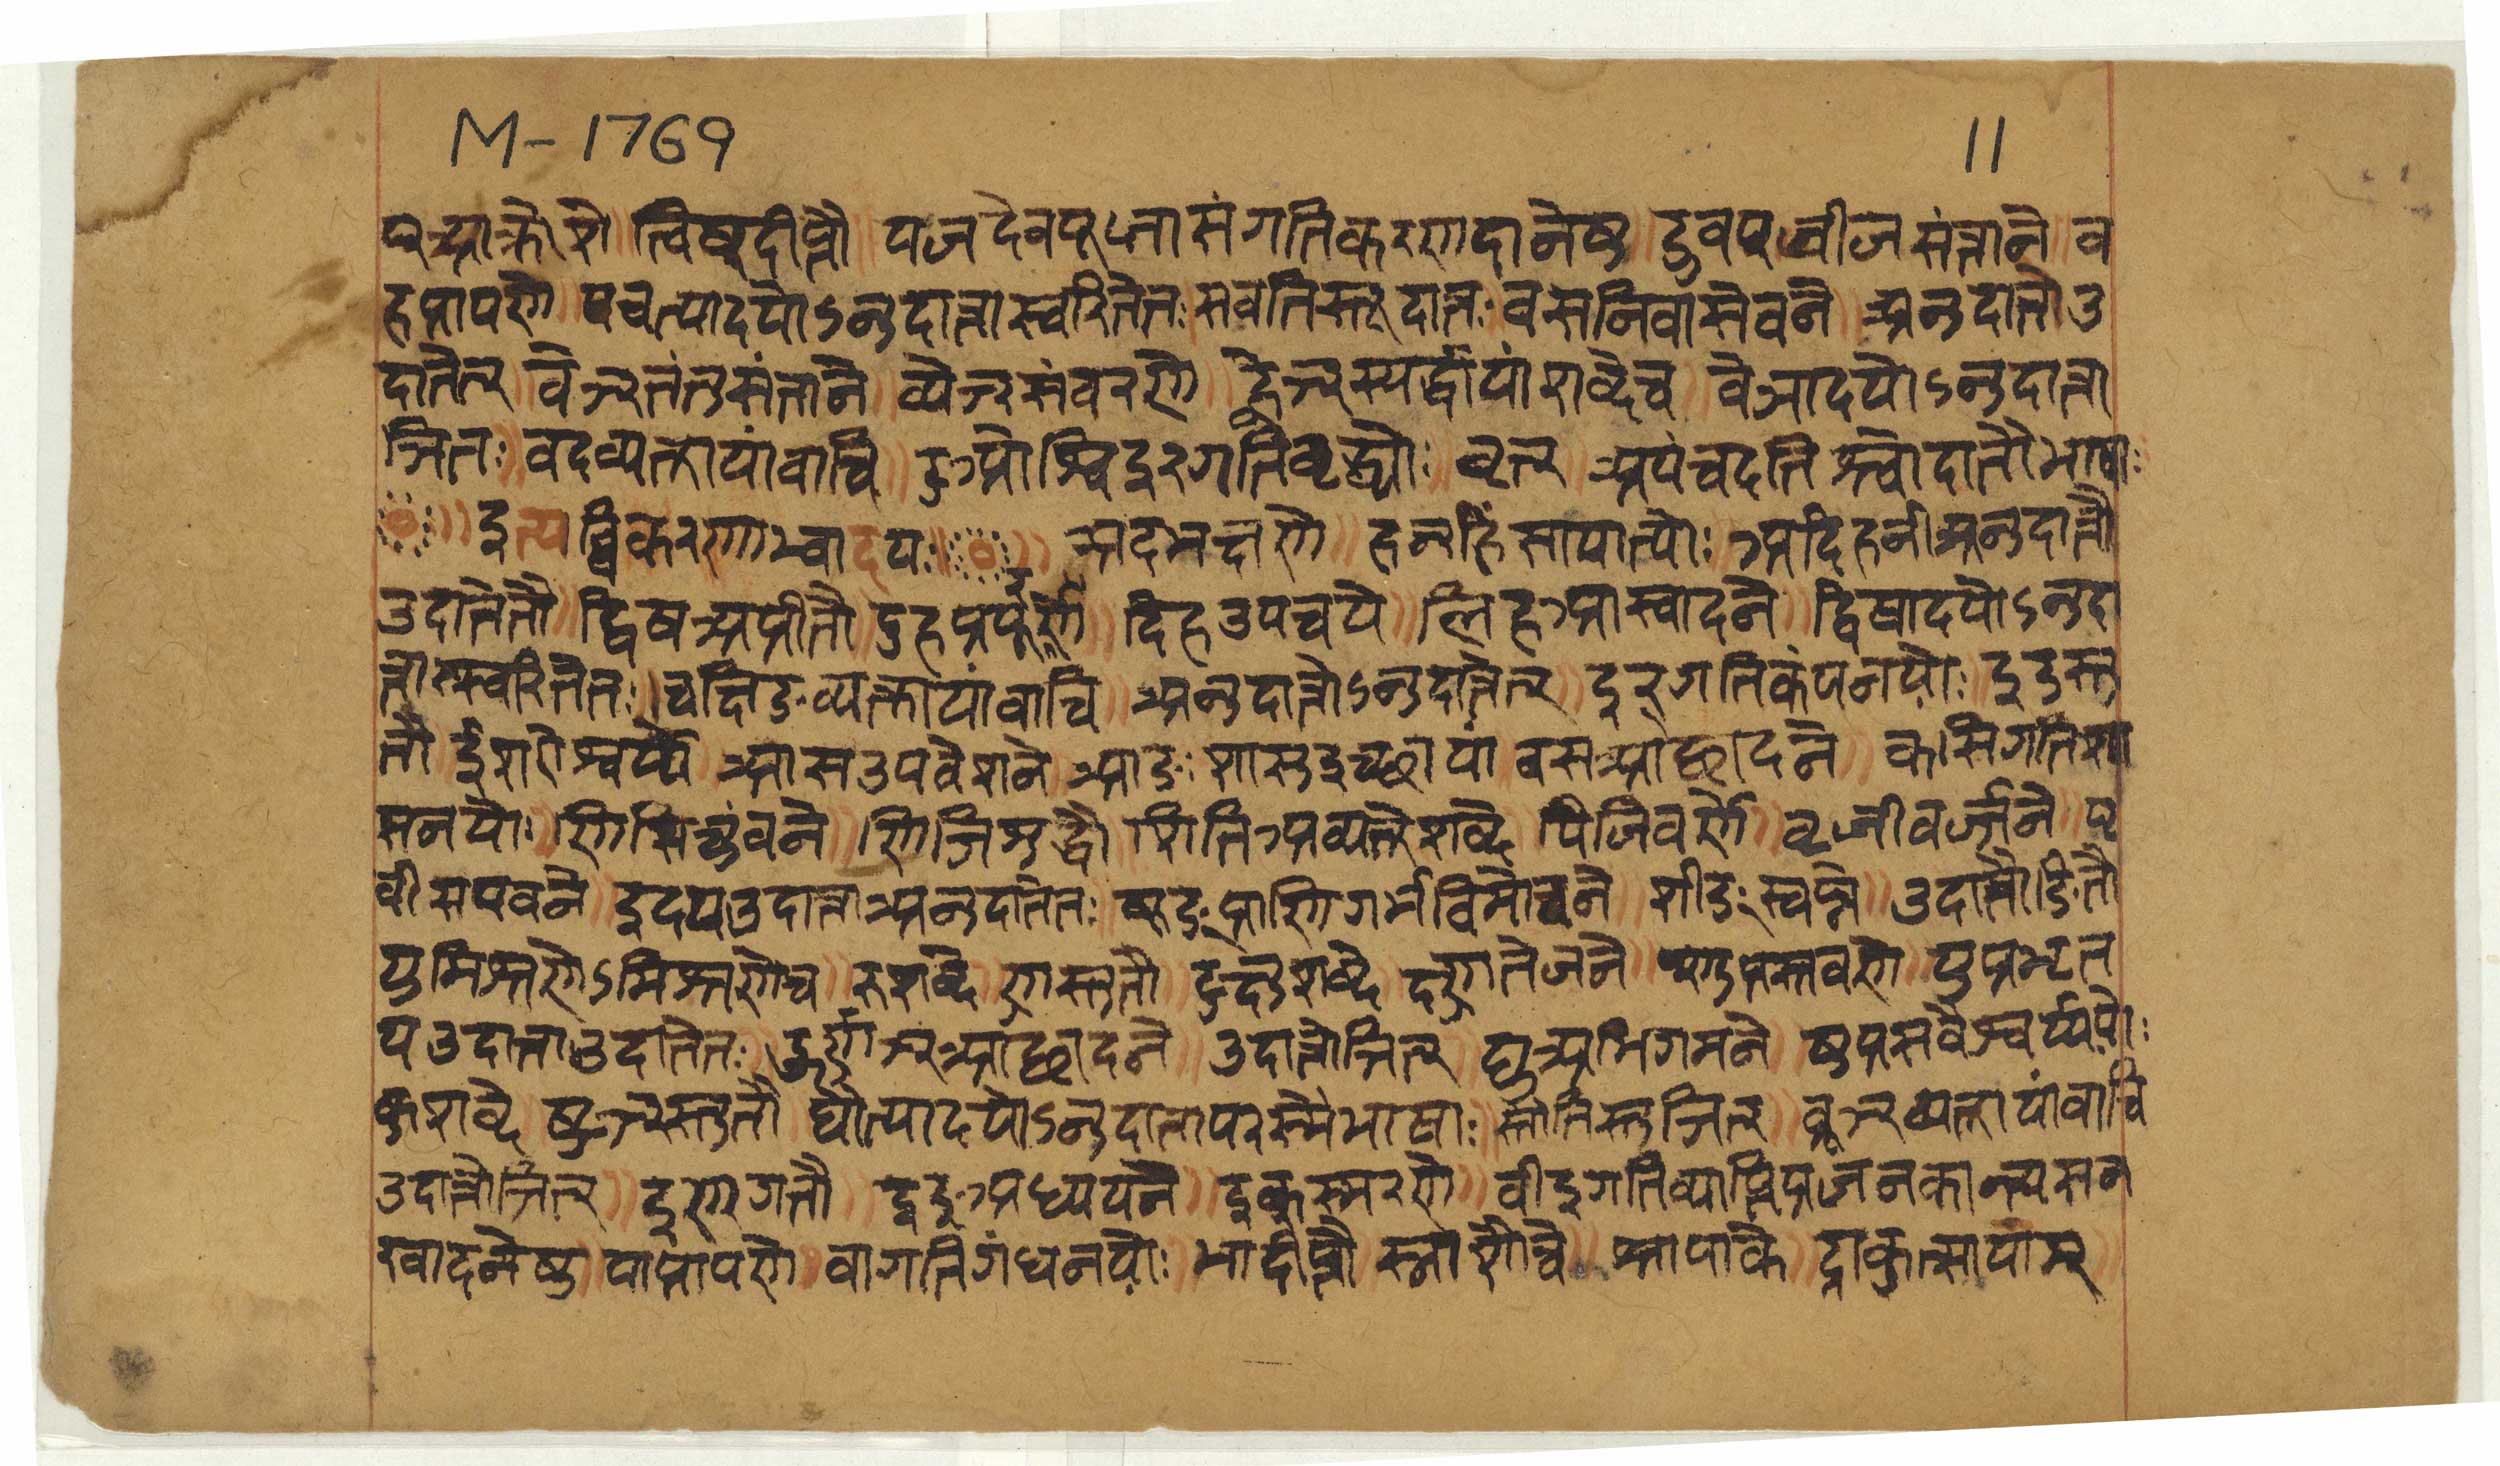 M-1769 11
प्आक्रोशे ॥ त्विष्दीप्तौ ॥ यजदेवपूजासंगतिकरणदानेषु ॥ डुवप्बीजसंताने ॥ व
हप्रापणे ॥ पचत्यादयोऽनुदात्तास्वरितेतः सचतिस्तूदात्तः ॥ वसनिवासेवने ॥ अनुदात्तोउ
दात्तेत् ॥ वेञ्तंतुसंताने ॥ व्येञ्संवरणे ॥ ह्वेञ्स्पर्द्धायांशब्देच ॥ वेञादयोऽनुदात्ता
ञितः ॥ वदव्यक्तायांवाचि ॥ टुओश्विइरगतिवृद्ध्योः वृत् ॥ अयंवदतिश्चोदात्तौभाषाः
॥ इत्यब्विकरणाभ्वादयः ॥ अदभक्षणे ॥ हन्हिंसागत्योः ॥ अदिहनीअनुदात्तौ
उदात्तेतौ ॥ द्विषअप्रीतौ ॥ दुहप्रपूरणे ॥ दिहउपचये ॥ लिहआस्वादने ॥ द्विषादयोऽनुदा
त्तास्स्वरितेतः ॥ चक्षिङ्व्यक्तायांवाचि ॥ अनुदात्तोऽनुदात्तेत् ॥ ईर्गतिकंपनयोः ॥ ईडस्तु
तौ ॥ ईशऐश्वर्य्ये ॥ आसउपवेशने ॥ आङःशासुइच्छायां ॥ वसआछादने ॥ कसिगतिशा
सनयोः ॥ णिसिचुंवने ॥ णिजिशुद्धौ ॥ शिजिअव्यक्तेशब्दे ॥ पिजिवर्णे ॥ वृजीवर्ज्जने ॥ पृ
चीसंपर्चने ॥ ईरादयउदात्ताअनुदात्तेतः ॥ षूङ्प्राणिगर्भविमोचने ॥ शीङ्स्वप्ने ॥ उदात्तौङितौ
युमिश्रणेऽमिश्रणेच ॥ रुशब्दे ॥ णुस्तुतौ ॥ टुक्षुशब्दे ॥ क्ष्णुतेजने ॥ ष्णुप्रस्त्रवणे ॥ युप्रभृत
यउदात्ताउदात्तेतः ॥ ऊर्णुञ्आछादने ॥ उदात्तोञित् ॥ द्युअभिगमने ॥ षुप्रसवैश्वर्य्ययोः
कुशब्दे ॥ ष्टुञ्स्तुतौ ॥ द्यौत्यादयोऽनुदात्तापरस्मैभाषाः स्तौतिस्तुञित् ॥ ब्रूञ्व्यक्तायांवाचि
उदात्तोञित् ॥ इण्गतौ ॥ इङ्अध्ययने ॥ इक्स्मरणे ॥ वीइगतिव्याप्तिप्रजनकान्त्यसन
खादनेषु ॥ याप्रापणे ॥ वागतिगंधनयोः ॥ भादीप्तौ ॥ स्नाशौचे ॥ श्रापाके ॥ द्राकुत्सायाम्